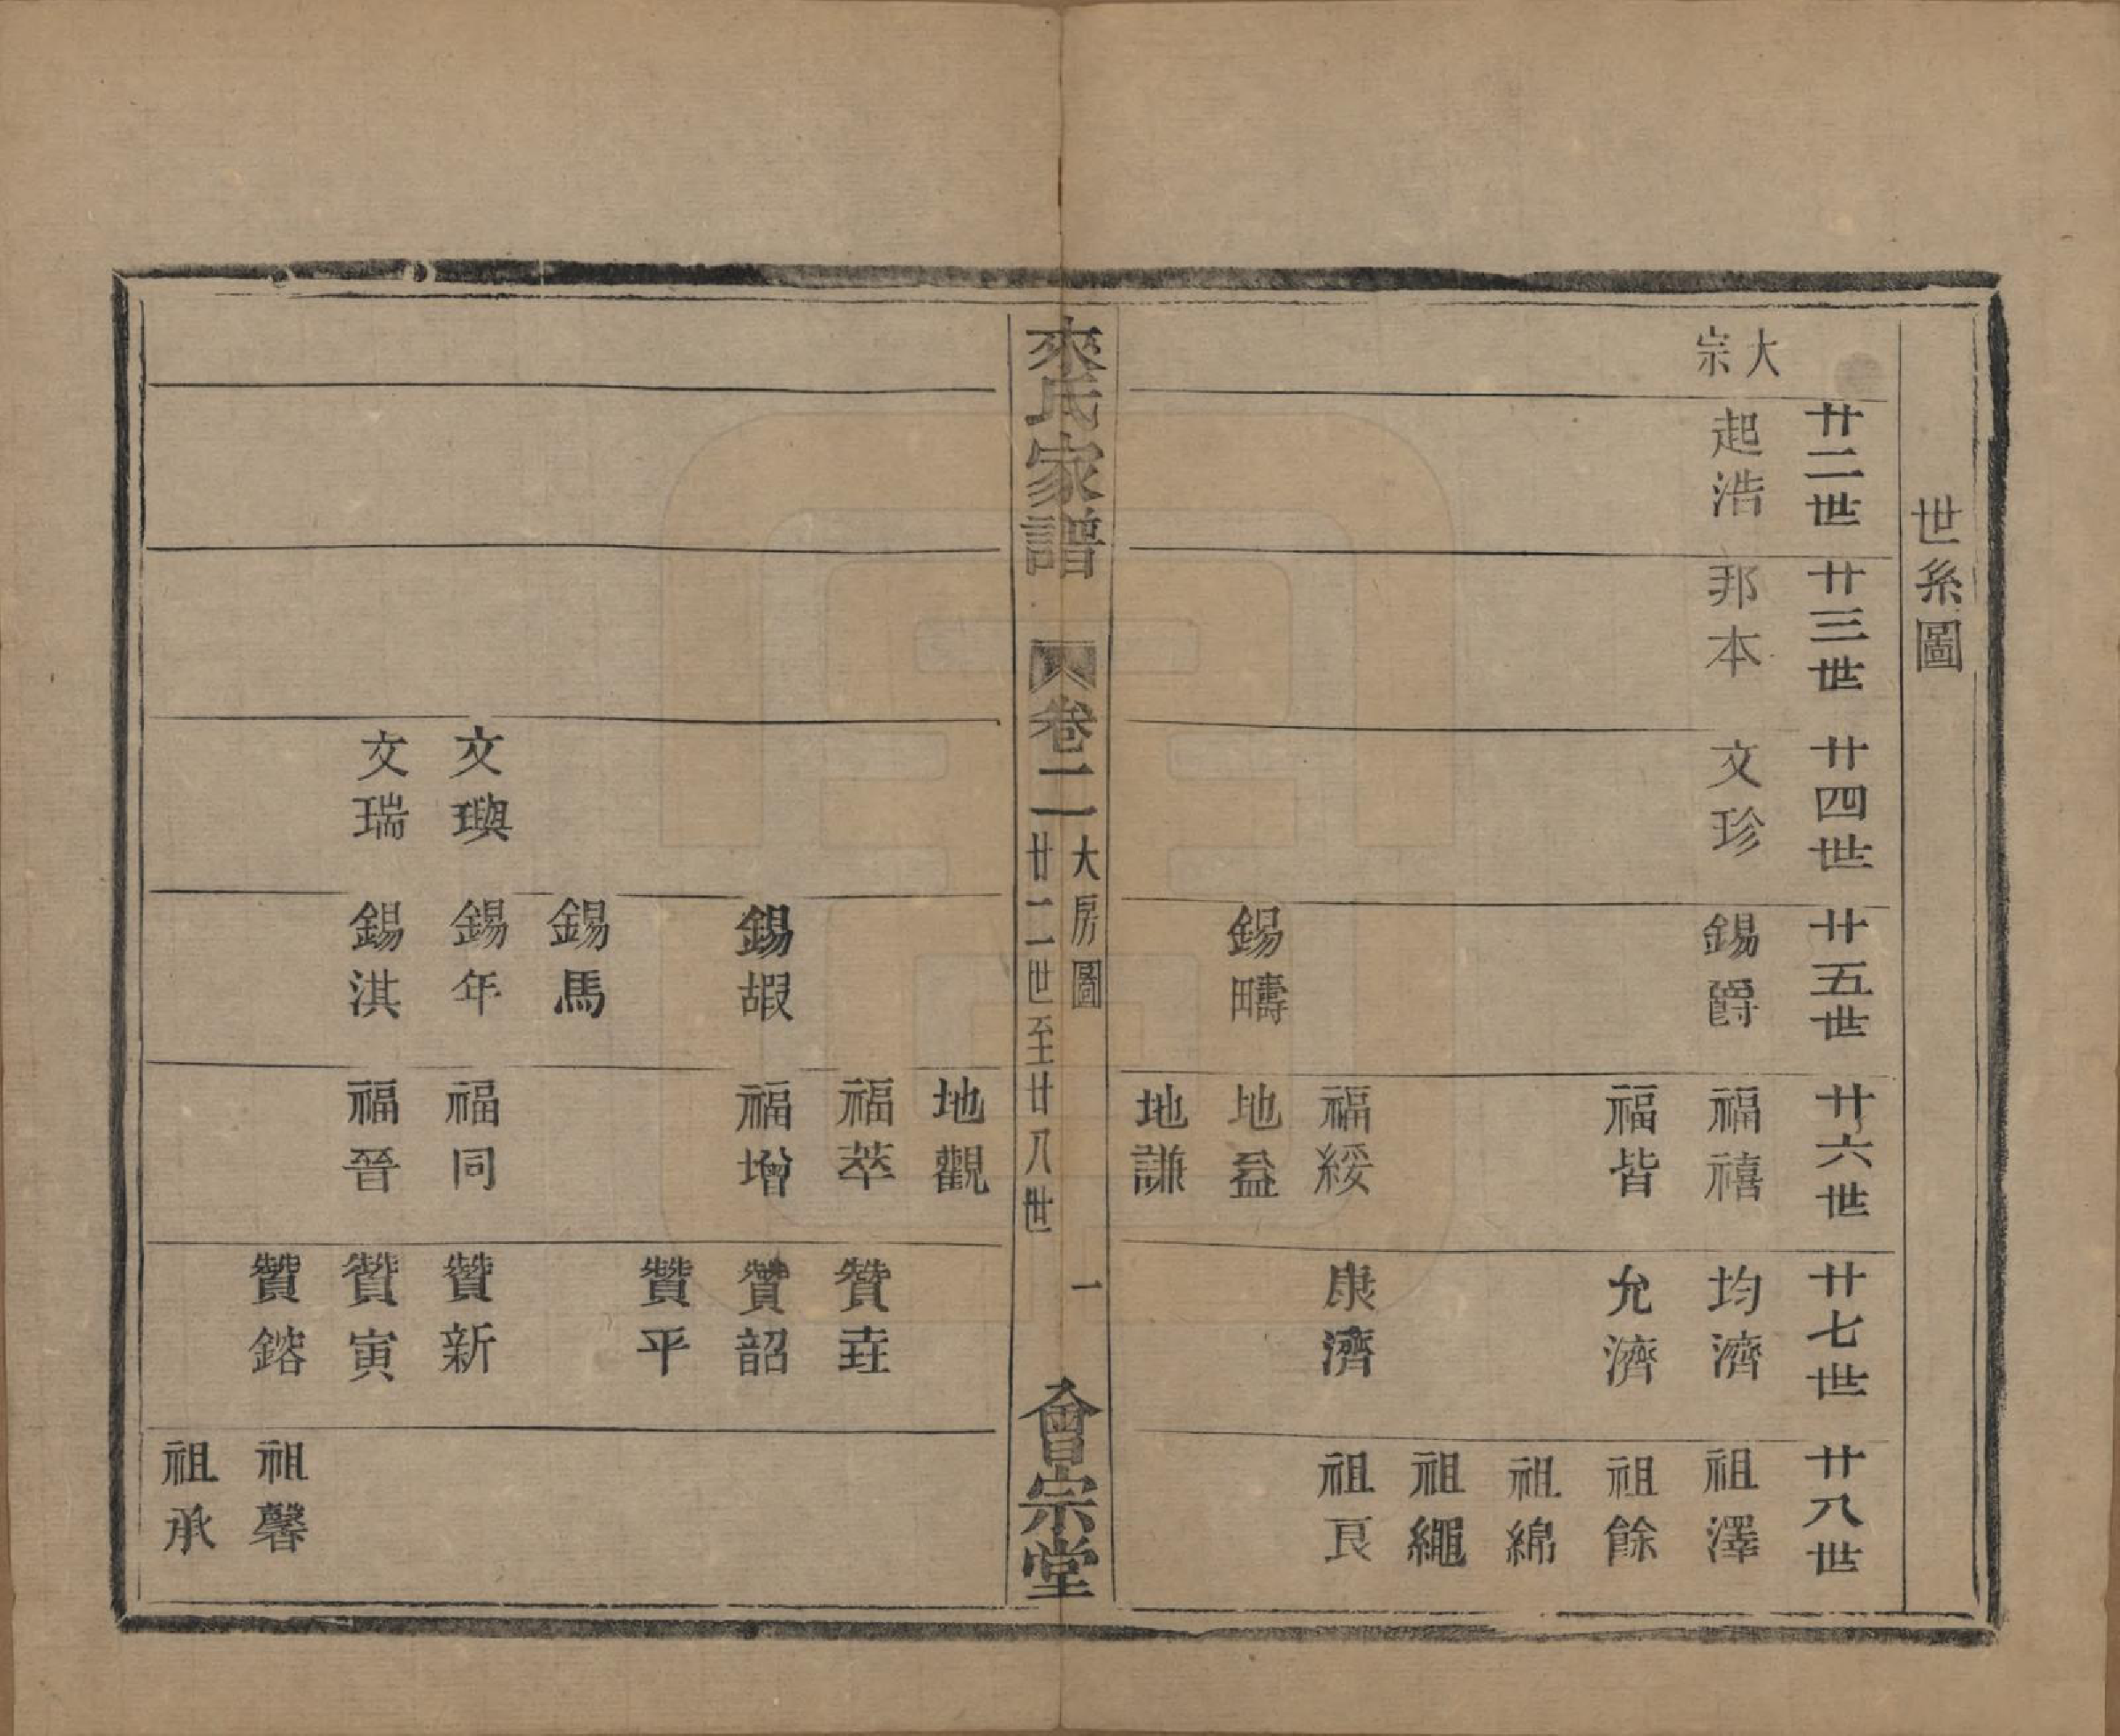 世系圖
大宗
廿二世
廿三世
廿四世
廿五世
廿六世
廿七世
廿八世
起浩
邦本
文珍
錫爵
福禧
均濟
祖澤
福皆
允濟
祖餘
祖綿
祖繩
福綏
康濟
祖良
錫疇
地益
地謙
來氏家譜
卷二
大房圖
廿二世至廿八世
一
會宗堂
地觀
福萃
贊垚
錫嘏
福增
贊韶
贊平
錫馬
文璵
錫年
福同
贊新
文瑞
錫淇
福晉
贊寅
贊鎔
祖馨
祖承